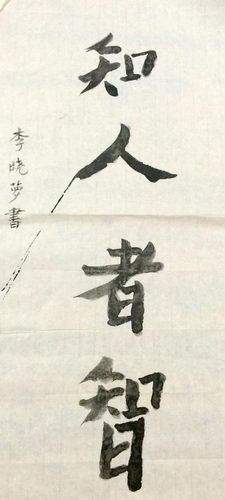 知人者智
李晓梦書